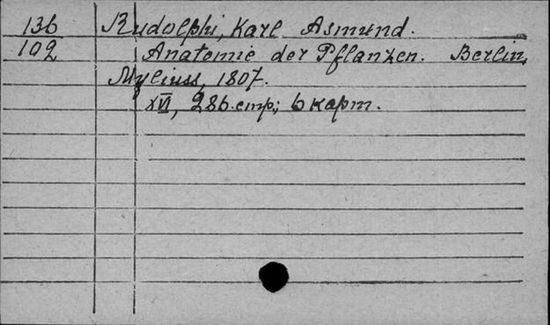 136 Rudolphi, Karl Asmund.
102 Anatomie der Pflanzen. Berlin,
Myliuss, 1807.
XVI, 286 стр; 6 карт.